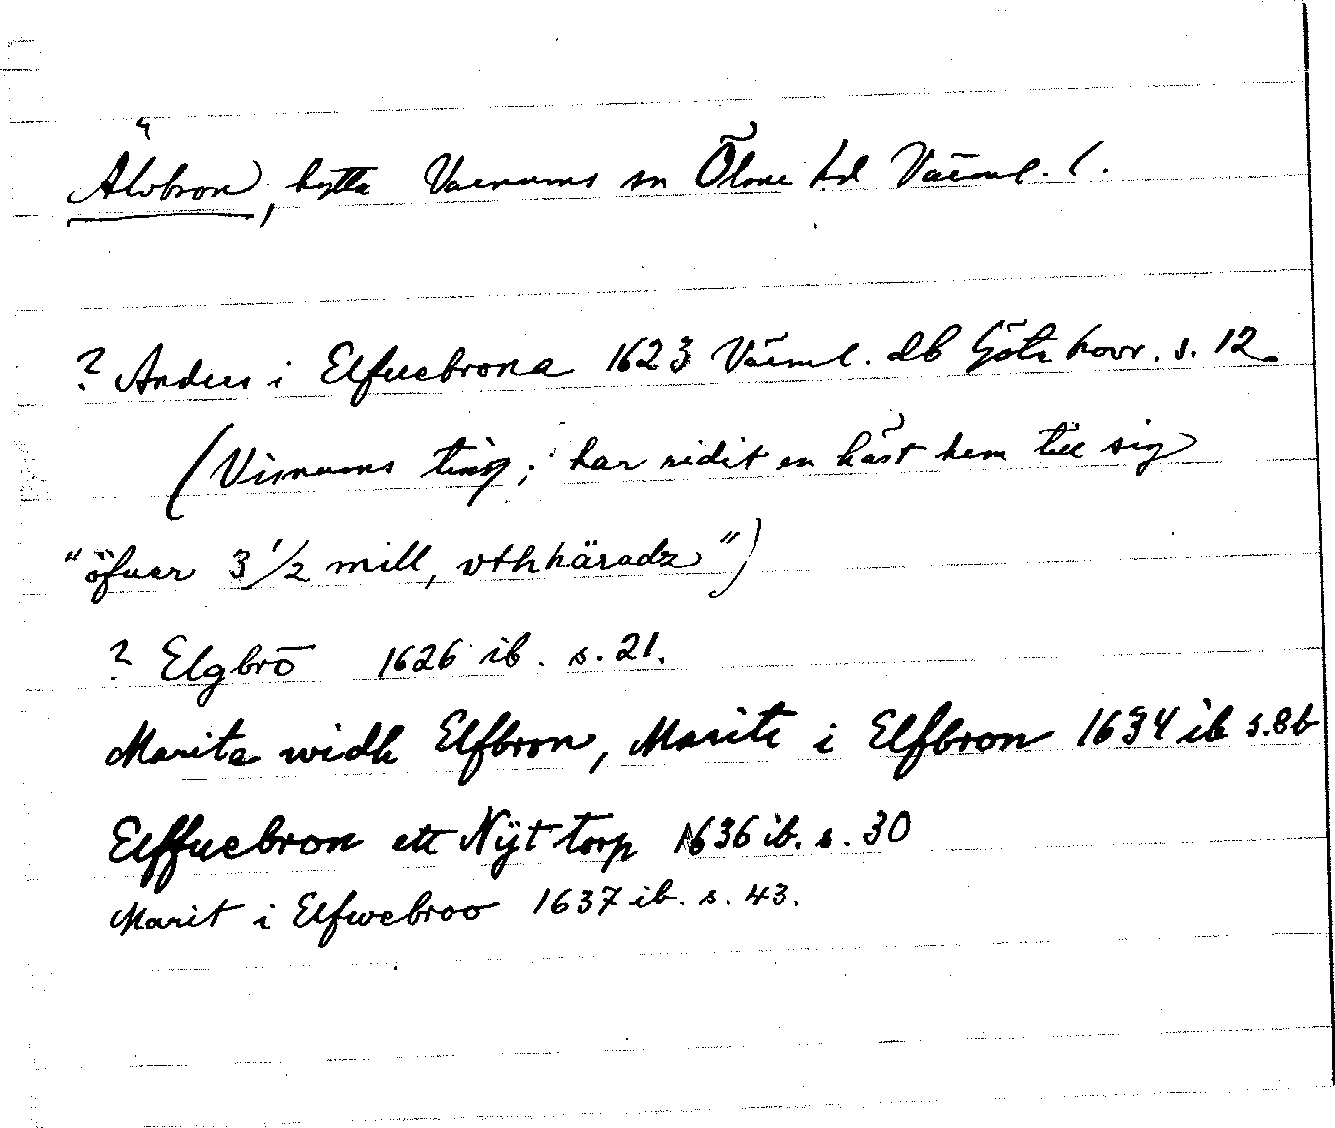 Älvbron, hytta Varnums sn Ölme hd Värml. l.
? Anders i Elfuebrona 1623 Värml. db Göta hovr. s. 12.
(Visnums ting; har ridit en häst hem till sig
"öfuer 3 1/2 mill, vthhäradz")
? Elgbrō 1626 ib. s. 21.
Marita widh Elfbron, Marit i Elfbron 1634 ib s. 8b
Elffuebron ett Nÿt torp 1636 ib. s. 30
Marit i Elfwebroo 1637 ib. s. 43.